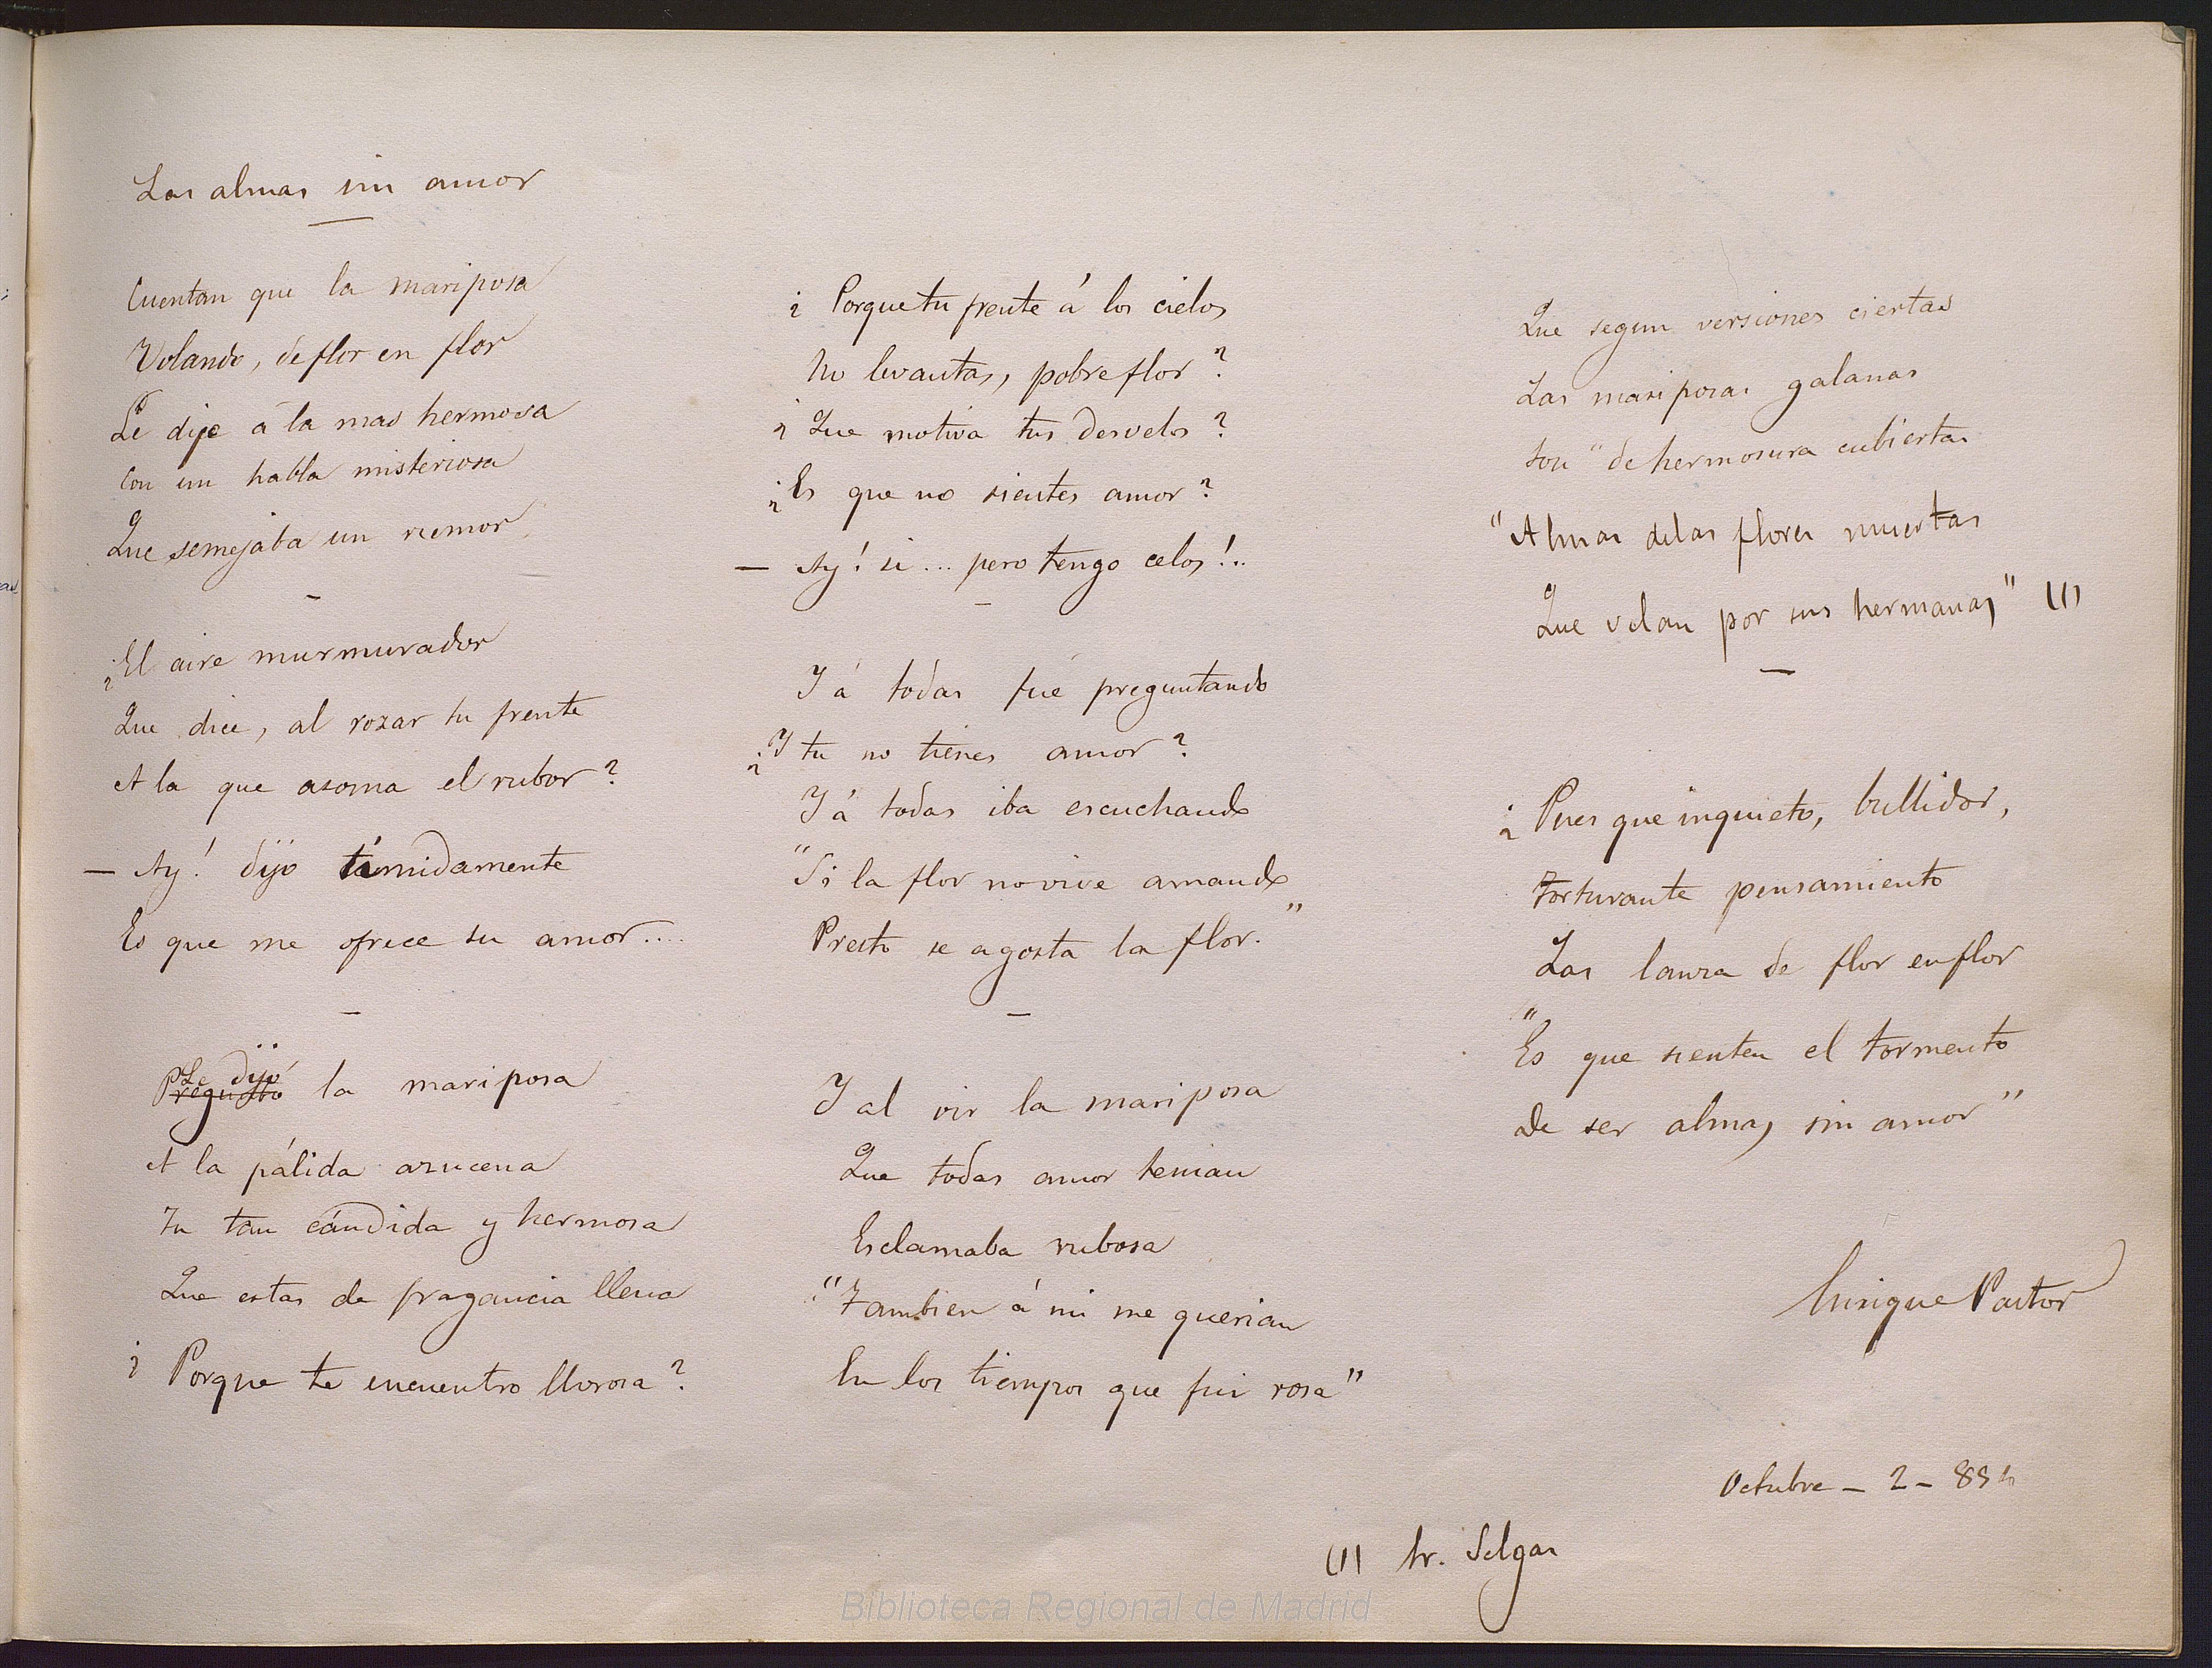 Las almas sin amor
Cuentan que la mariposa
Volando, de flor en flor
Le dijo á la mas hermosa
Con un habla misteriosa
Que semejaba un rumor
¿El aire murmurador
Que dice, al rozar tu frente
A la que asoma el rubor?
— Ay! dijo tímidamente
Es que me ofrece su amor....
Le dijo
Pregustó la mariposa
A la pálida azucena
Tu tan cándida y hermosa
Que estas de fragancia llena
¿Porque te encuentro llorosa?
¿Porque tu frente á los cielos
No levantas, pobre flor?
¿Que motiva tus desvelos?
¿Es que no sientes amor?
— Ay! si... pero tengo celos!..
Y á todas fué preguntando
¿Y tu no tienes amor?
Y á todas iba escuchando
"Si la flor no vive amando
Presto se agosta la flor."
Y al oir la mariposa
Que todas amor tenian
Esclamaba rubosa
"Tambien á mi me querian
En los tiempos que fui rosa"
Que segun versiones ciertas
Las mariposas galanas
Son "de hermosura cubiertas
"Almas de las flores muertas
Que velan por sus hermanas" (1)
¿Pues que inquieto, bullidor,
Torturante pensamiento
Las lanza de flor en flor
"Es que sienten el tormento
De ser almas sin amor"
Enrique Pastor
Octubre - 2 - 884
(1) Sr. Selgas
Biblioteca Regional de Madrid